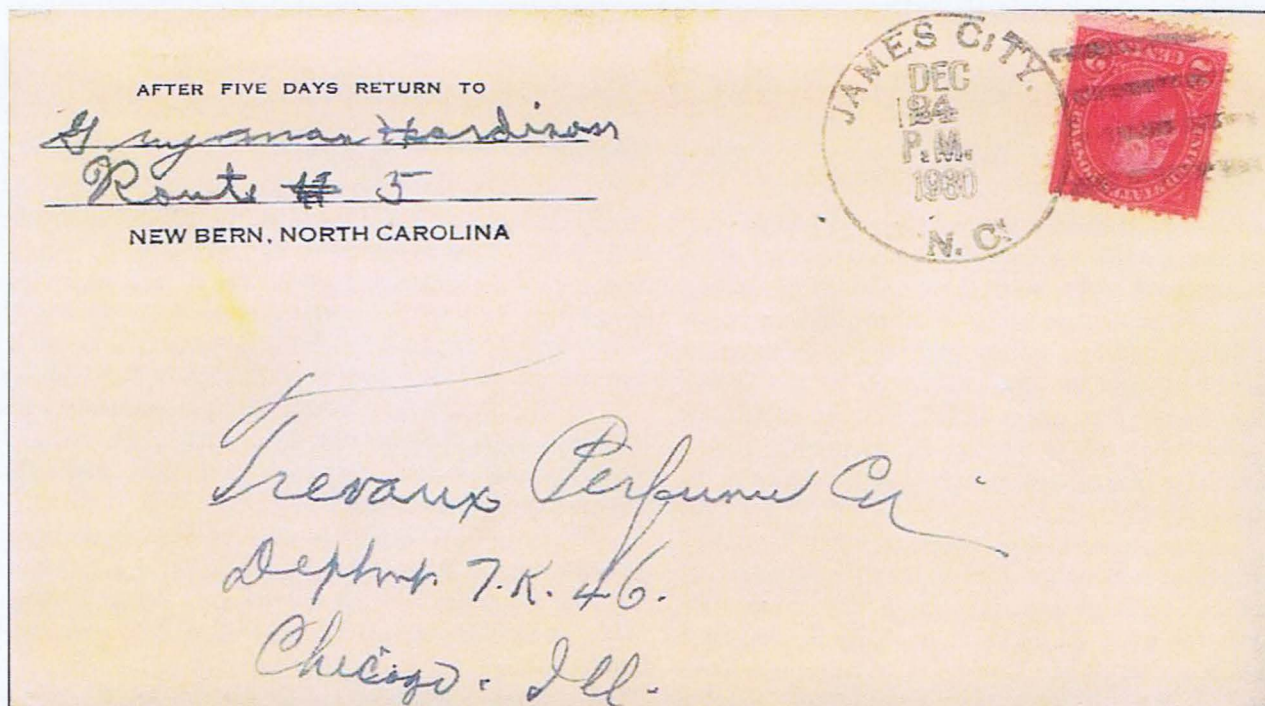 AFTER FIVE DAYS RETURN TO
Hardison
Route # 5
NEW BERN, NORTH CAROLINA
JAMES CITY.
DEC
24
P.M.
1930
N. C.
Trevaux Perfume Co
Deptmt. T.K. 46.
Chicago. Ill.